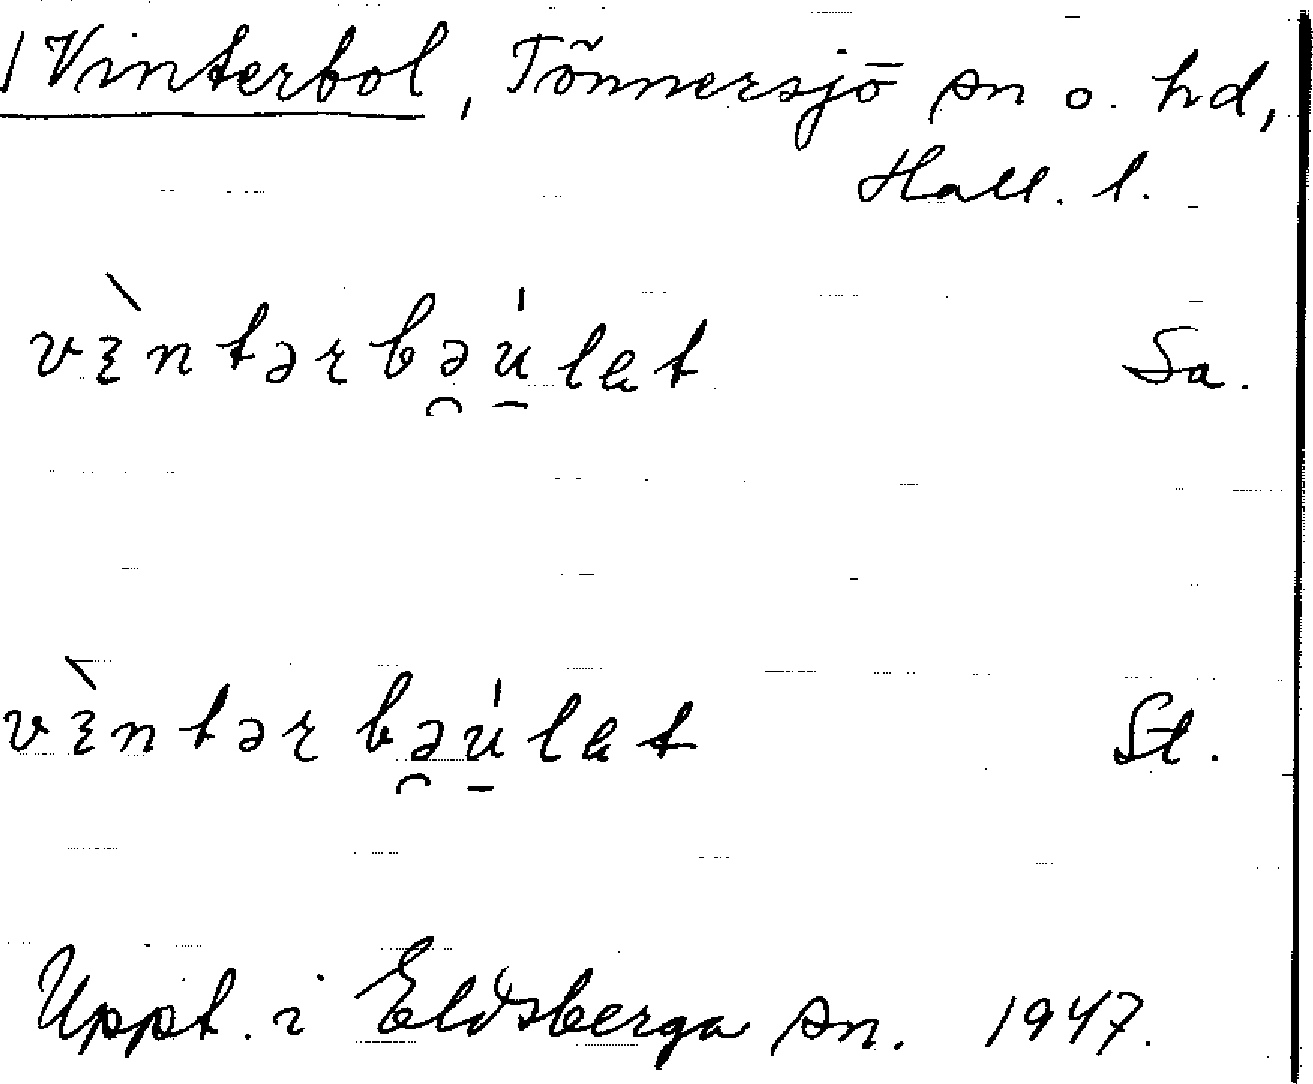 /Vinterbol, Tönnersjö sn o. hd,
Hall. l.
vìntərbəúlat Sa.
vìntərbəúlat St.
Uppt. i Eldsberga sn. 1947.